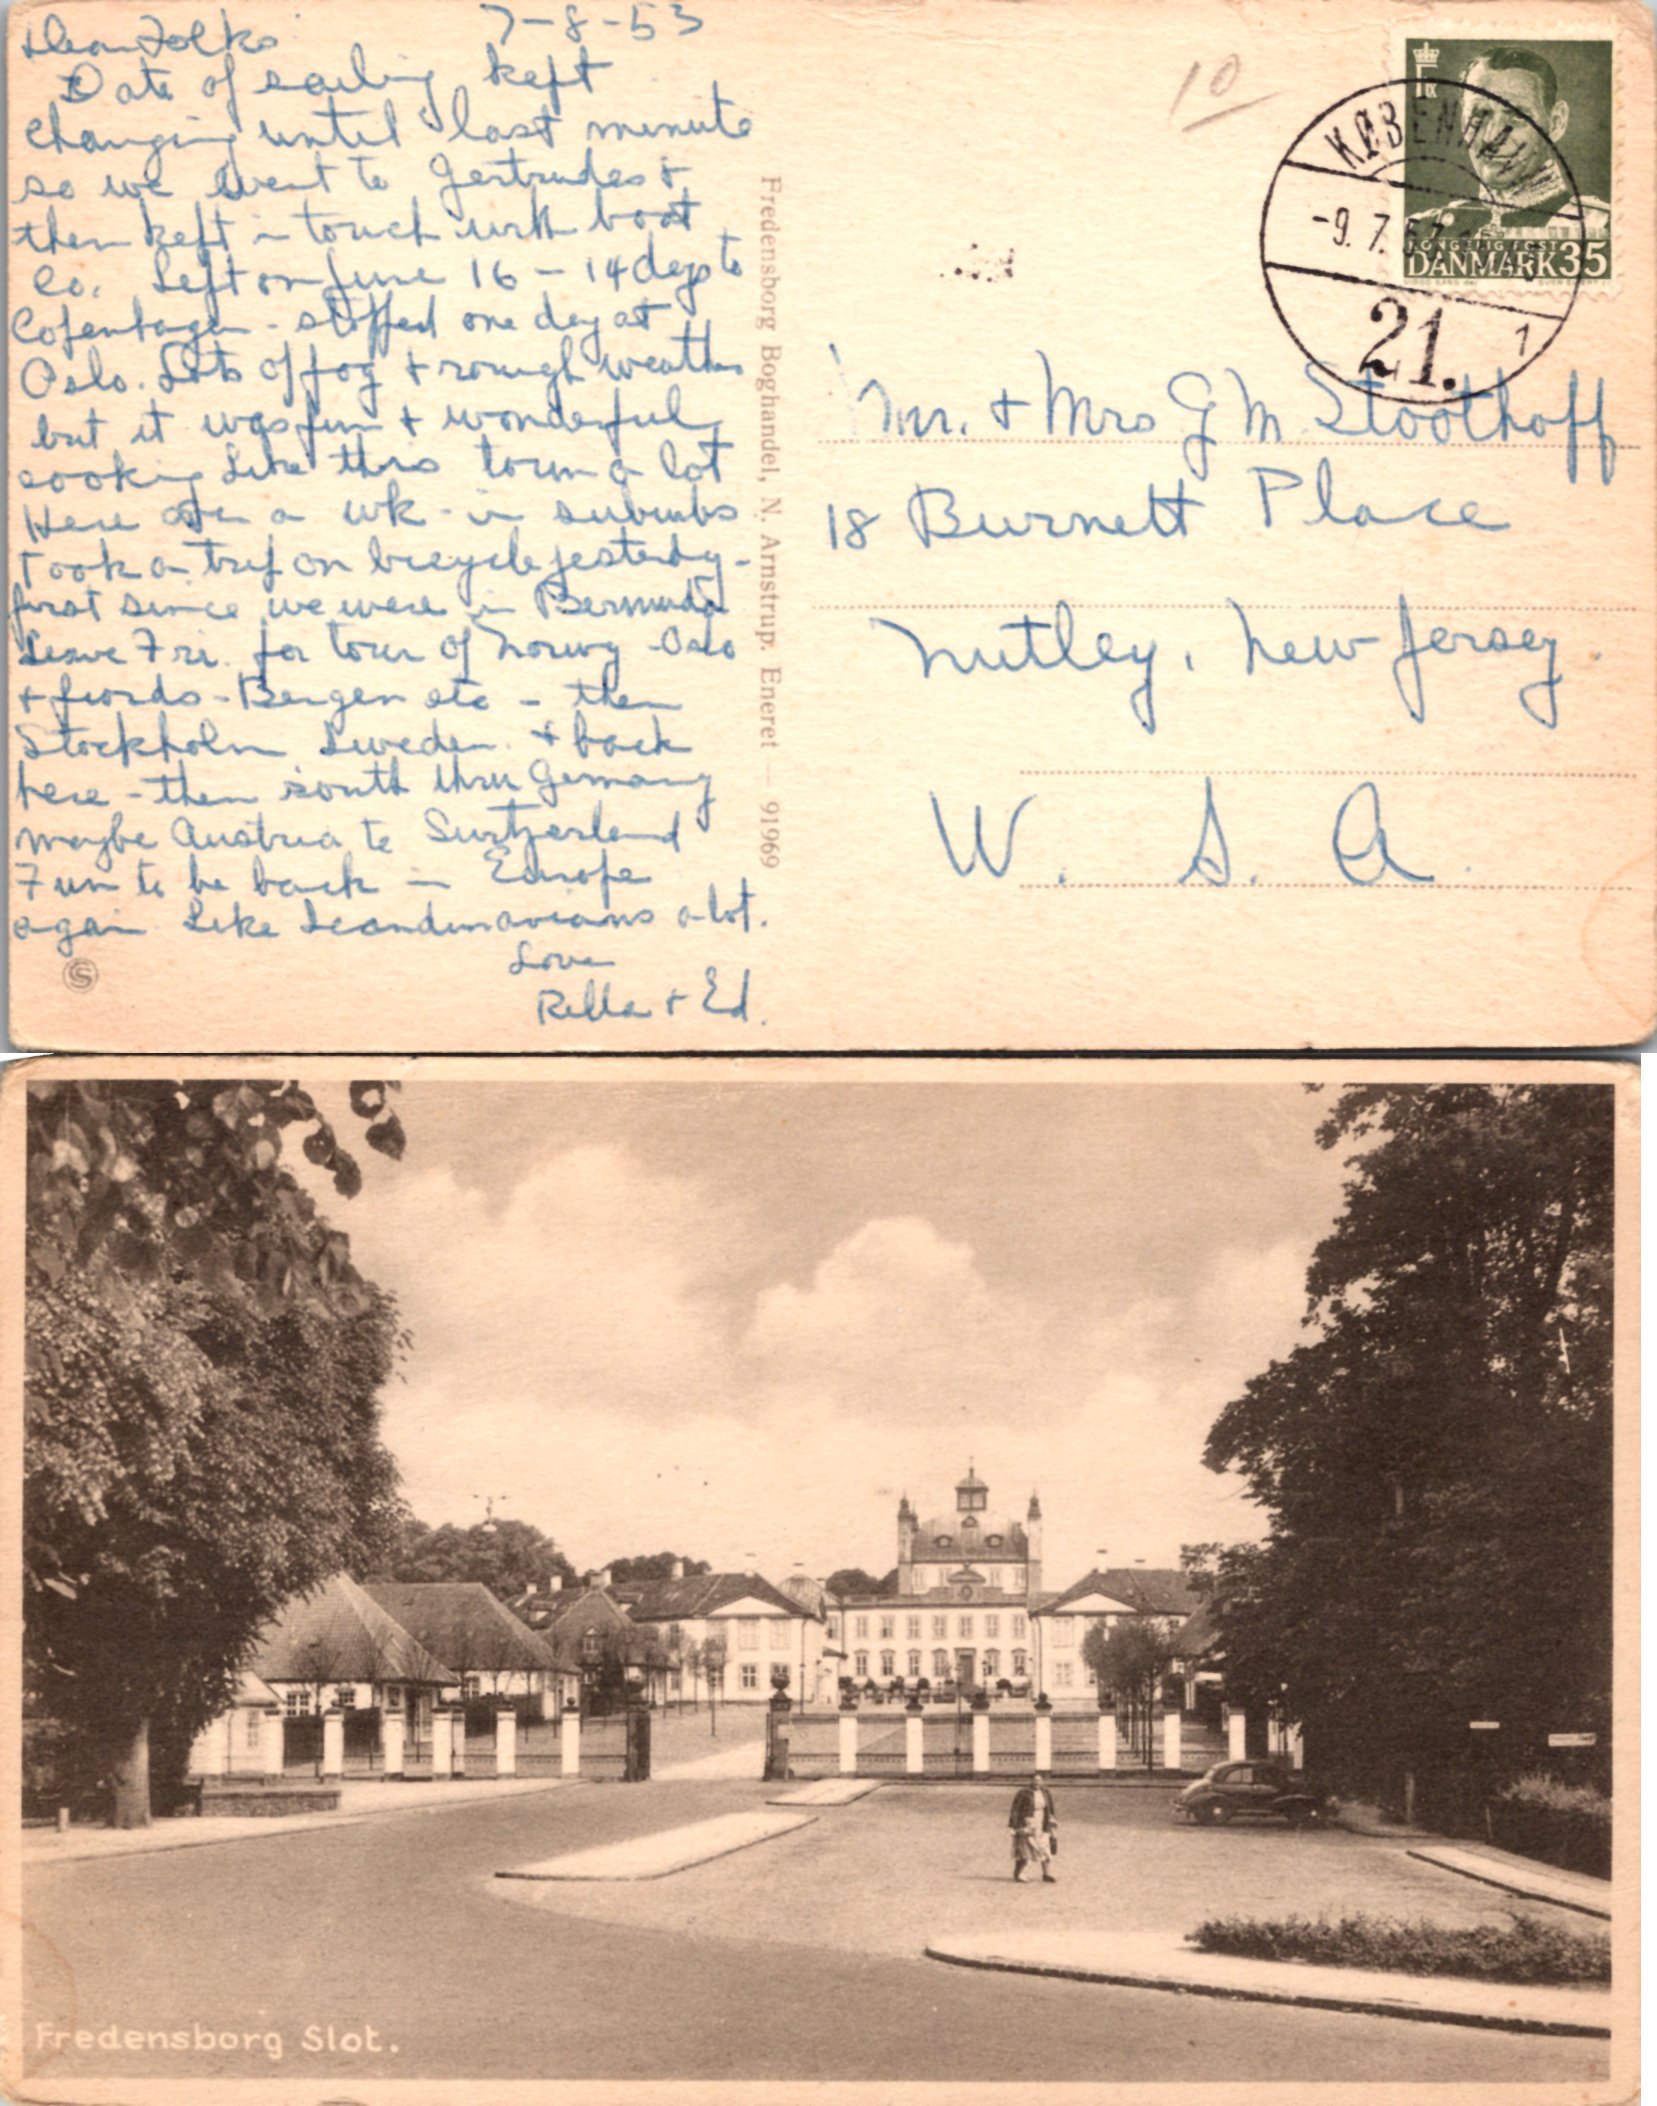 7-8-53
Dear Folks
Date of sailing kept
changing until last minute
so we went to Gertrudes +
then kept in touch with boat
Co. Left on June 16 - 14 days to
Copenhagen - stopped one day at
Oslo. Lots of fog + rough weather
but it was fun + wonderful
cooking Like this town a lot
Here a wk - in suburbs
Took a trip on bicycle yesterday -
first since we were in Bermuda
Leave Fri. for tour of Norway - Oslo
+ fiords - Bergen etc - then
Stockholm Sweden. + back
here - then south thru Germany
maybe Austria to Switzerland
Fun to be back in Europe
again Like Scandinavians a lot.
Love
Rella + Ed.
S
Fredensborg Boghandel, N. Arnstrup. Eneret — 91969
10
KØBENHAVN
-9.7.53
21. 1
KONGELIG POST
DANMARK 35
Mr. + Mrs G M Stoothoff
18 Burnett Place
Nutley, New Jersey.
U. S. A.
Fredensborg Slot.